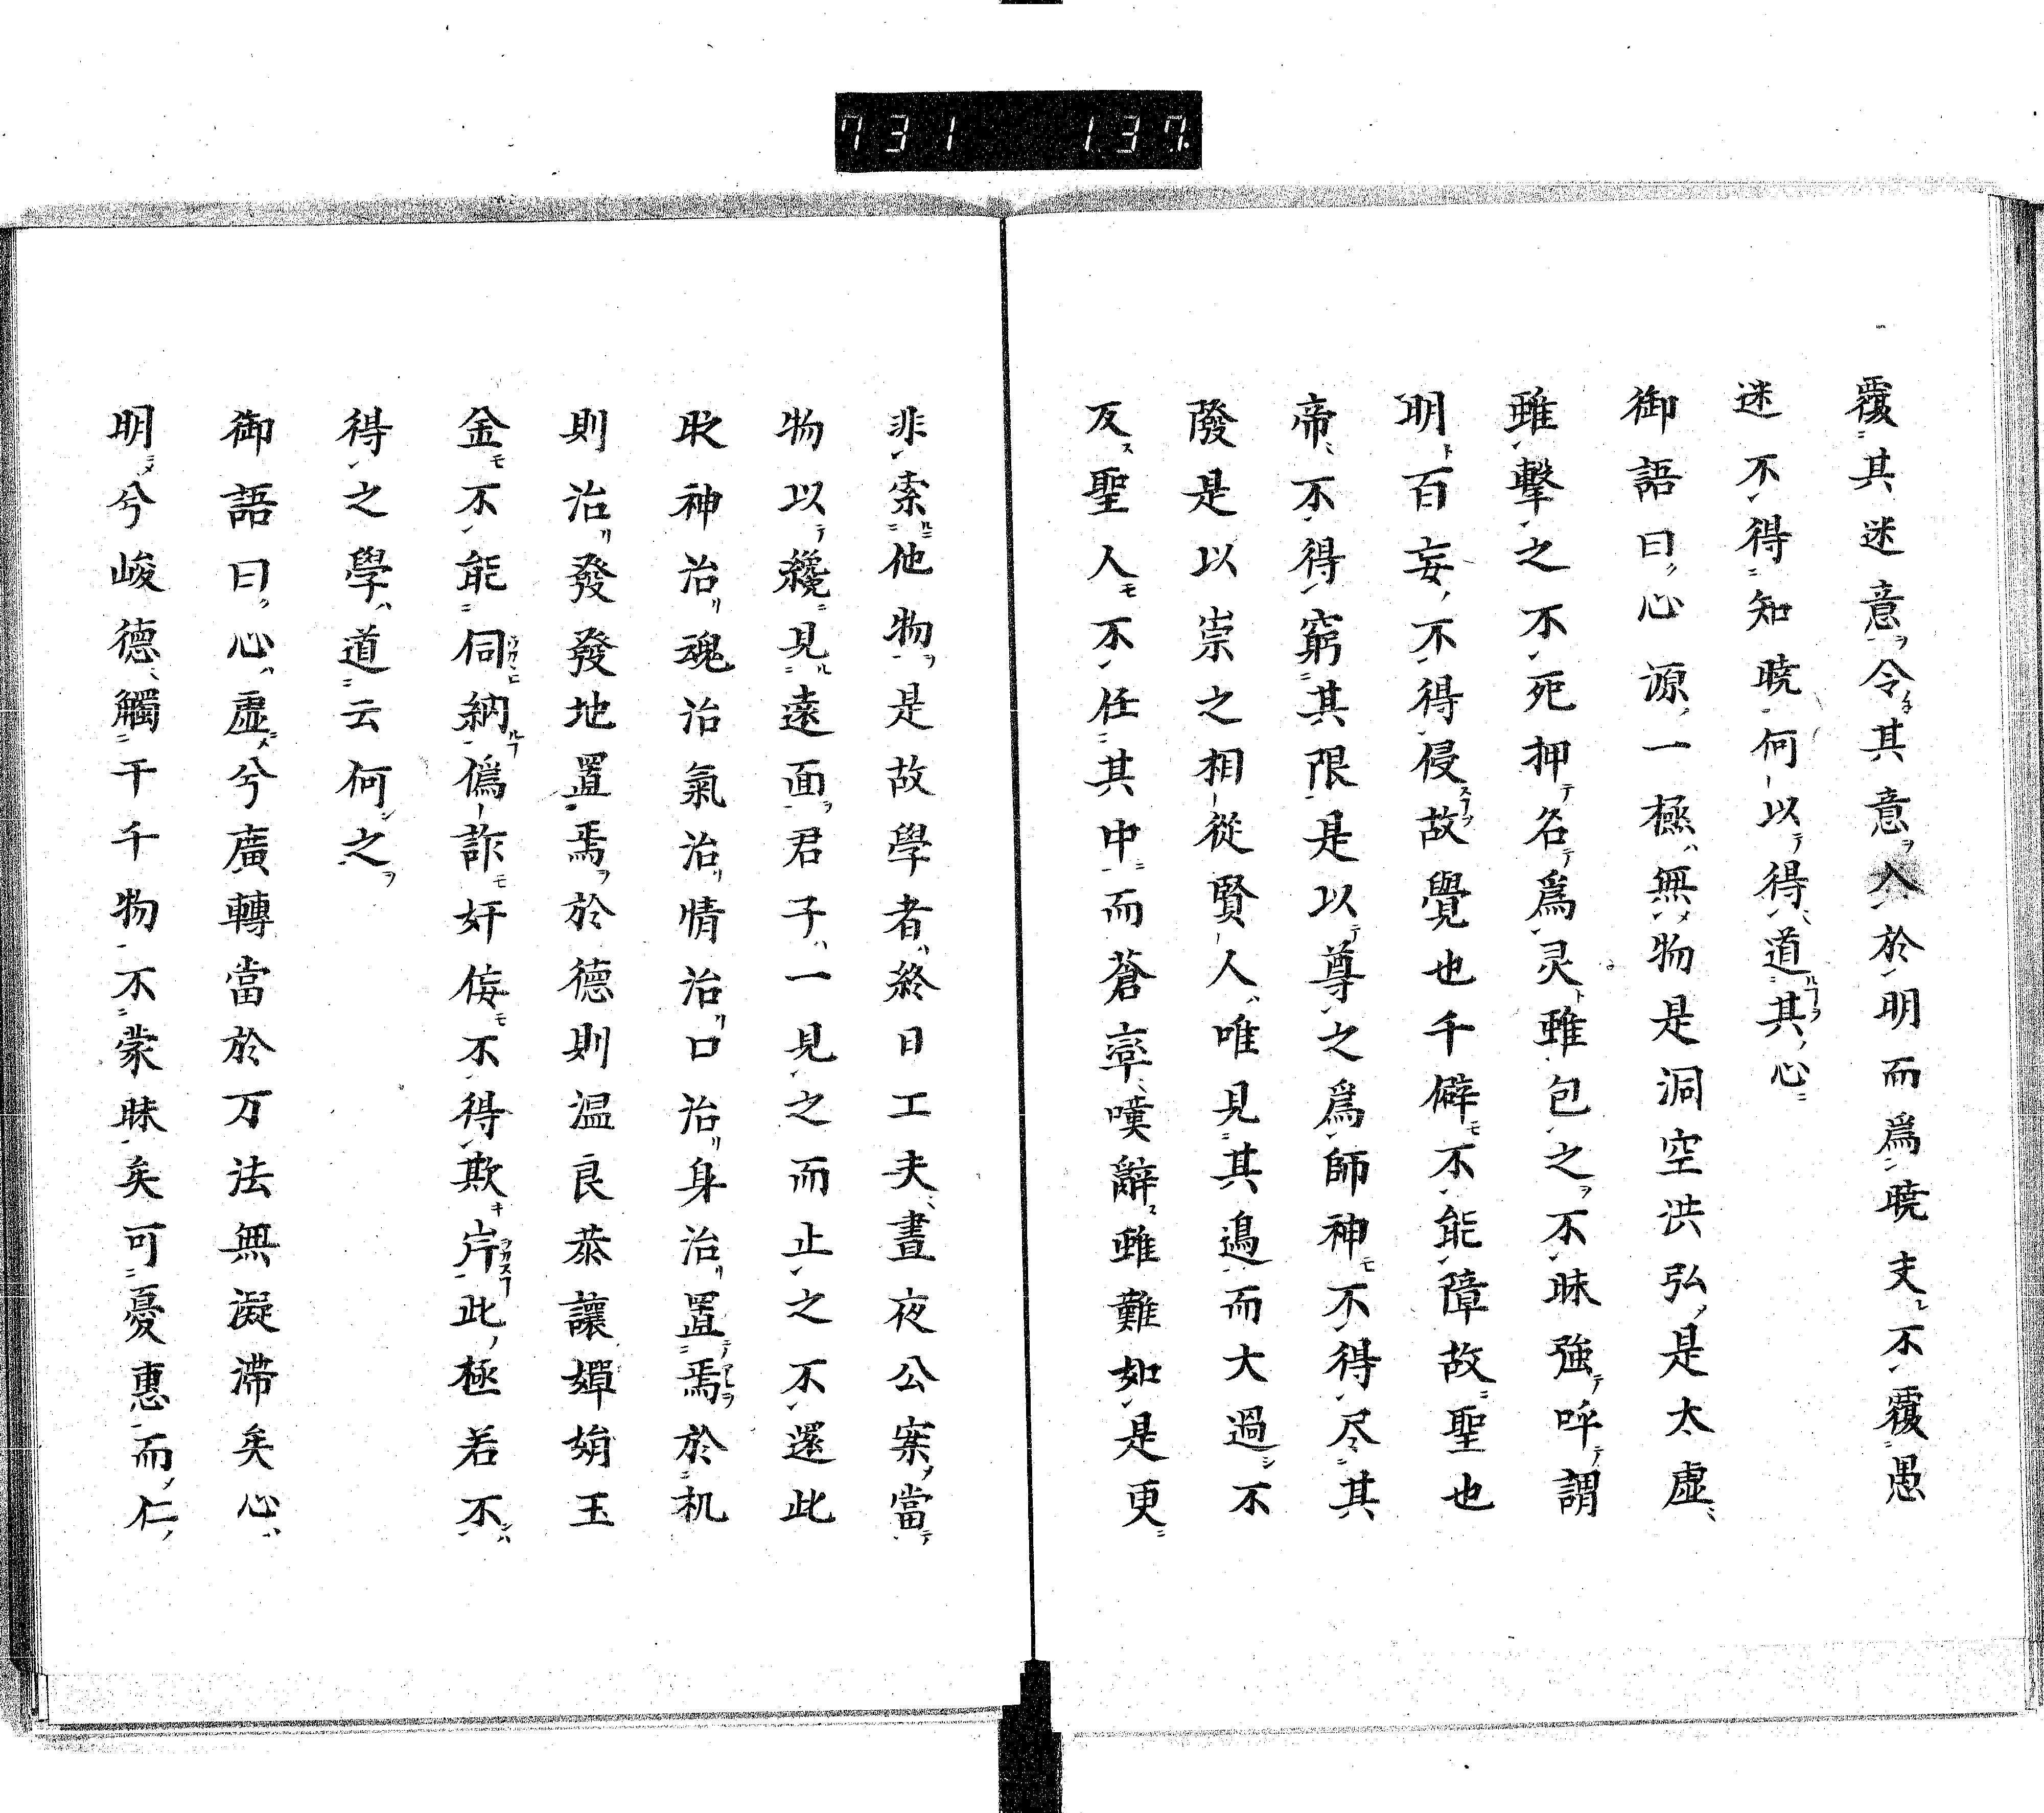 731 137
覆其迷意令其意入於明而爲曉支不覆愚
迷不得知曉何以得道其心
御語曰心源一極無物是洞空洪弘是太虛
雖擊之不死押名爲灵雖包之不昧強呼謂
明百妄不得侵故覺也千僻不能障故聖也
帝不得窮其限是以尊之爲師神不得尽其
廢是以崇之相從賢人唯見其邉而大過不
反聖人不任其中而蒼卒嘆辭雖難如是更
非索他物是故學者終日工夫晝夜公案當
物以纔見遠面君子一見之而止之不還此
政神治魂治氣治情治口治身治置焉於机
則治發發地置焉於德則温良恭讓嬋娟玉
金不能伺納僞詐奸侫不得欺此極若不
得之學道云何之
御語曰心虛兮廣轉當於万法無凝滯矣心
明兮峻德觸干千物不蒙昧矣可憂惠而仁